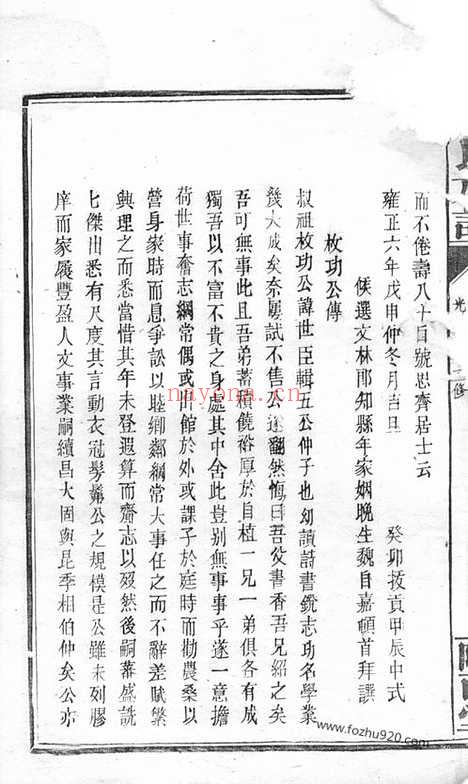 而不倦壽八十自號思齊居士云
雍正六年戊申仲冬月吉旦　癸卯拔貢甲辰中式
候選文林郎知縣年家姻晚生魏自嘉頓首拜譔
枚功公傳
叔祖枚功公諱世臣輯五公仲子也幼讀詩書銳志功名學業
幾大成矣奈屢試不售公遂翻然悔曰吾父書香吾兄紹之矣
吾可無事此且吾弟蓄積饒裕厚於自植一兄一弟俱各有成
獨吾以不富不貴之身處其中舍此豈別無事事乎遂一意擔
荷世事奮志綱常偶或出館於外或課子於庭時而勸農桑以
營身家時而息爭訟以睦鄉鄰綱常大事任之而不辭差賦繁
興理之而悉當惜其年未登遐算而齎志以歿然後嗣蕃盛詵
七傑出悉有尺度其言動衣冠髣髴公之規模是公雖未列膠
庠而家履豐盈人文事業嗣續昌大固與昆季相伯仲矣公亦
光
修
nayona.cn
www.fozhu920.com